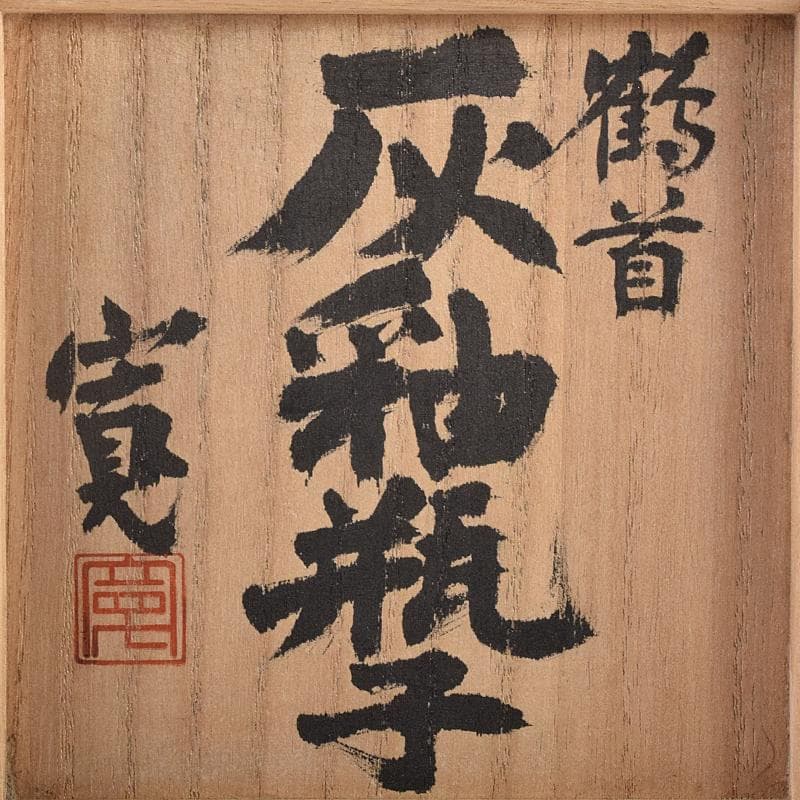 鶴首
灰釉瓶子
寛